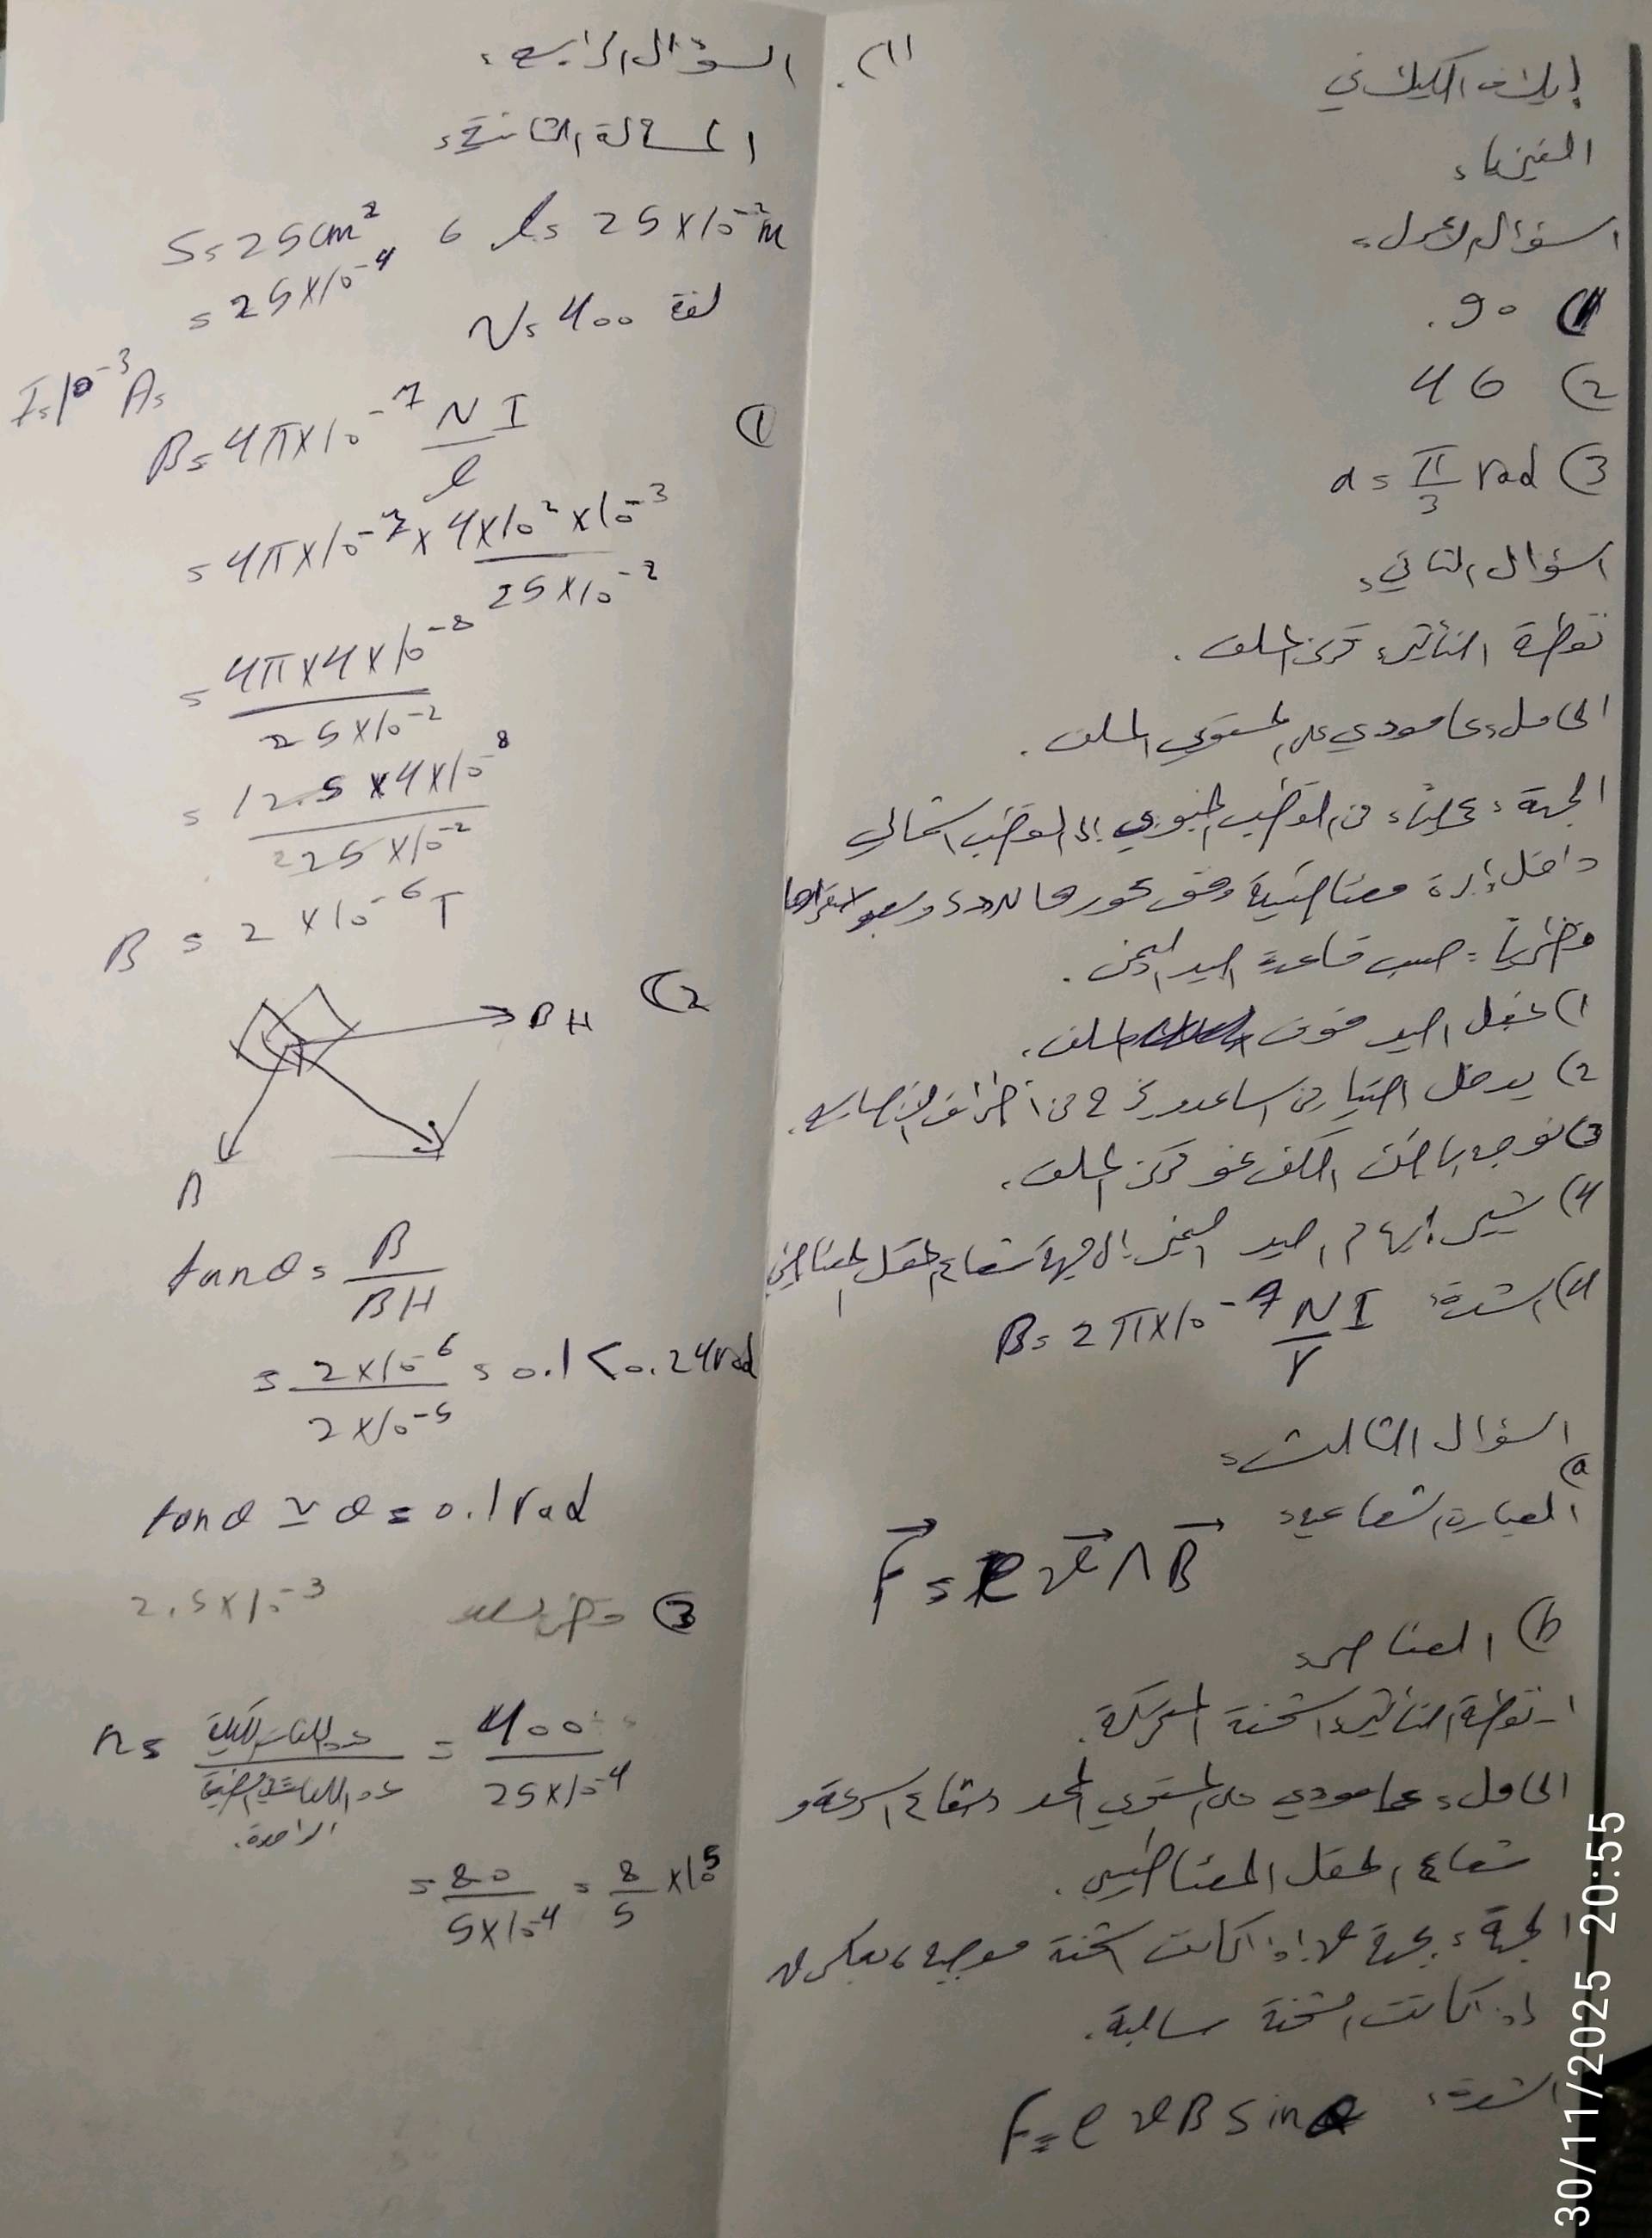 (1)
الفيزياء
السؤال الأول:
(1 90.
(2 46
(3 a = π/3 rad
السؤال الثاني:
نقطة التأثير: مركز الملف.
الحامل: عامودي على مستوي الملف.
الجهة: عملياً: من القطب الجنوبي إلى القطب الشمالي
داخل إبرة مغناطيسية وفق محورها بعد استقرارها
نظرياً: حسب قاعدة اليد اليمنى.
(1 نجعل اليد فوق الملف.
(2 يدخل التيار من الساعد ويخرج من أطراف الأصابع.
(3 نوجه باطن الكف نحو مركز الملف.
(4 يشير إبهام اليد اليمنى إلى جهة شعاع الحقل المغناطيسي
(4 الشدة: B = 2π×10^-7 NI/r
السؤال الثالث:
(a
العبارة الشعاعية: F = e v ∧ B
(b العناصر:
1- نقطة التأثير: الشحنة المتحركة.
الحامل: عامودي على المستوي المحدد بشعاع السرعة و
شعاع الحقل المغناطيسي.
الجهة: بجهة إذا كانت الشحنة موجبة، بعكس
إذا كانت الشحنة سالبة.
الشدة: F = e v B sin θ
السؤال الرابع:
المسألة الثانية:
S = 25 cm² ، l = 25×10^-2 m
= 25×10^-4
N = 400 لفة
I = 10^-3 A
(1 B = 4π×10^-7 NI/l
= 4π×10^-7 × 4×10² × 10^-3 / 25×10^-2
= 4π×4×10^-8 / 25×10^-2
= 12.5×4×10^-8 / 25×10^-2
B = 2×10^-6 T
(2
BH
B
tan θ = B/BH
= 2×10^-6 / 2×10^-5 = 0.1 < 0.24 rad
tan θ ≃ θ = 0.1 rad
(3 2.5×10^-3
n = عدد اللفات الكلية / عدد اللفات في الطبقة الواحدة. = 400 / 25×10^-4
= 80 / 5×10^-4 = 8/5 ×10^5
30/11/2025 20:55